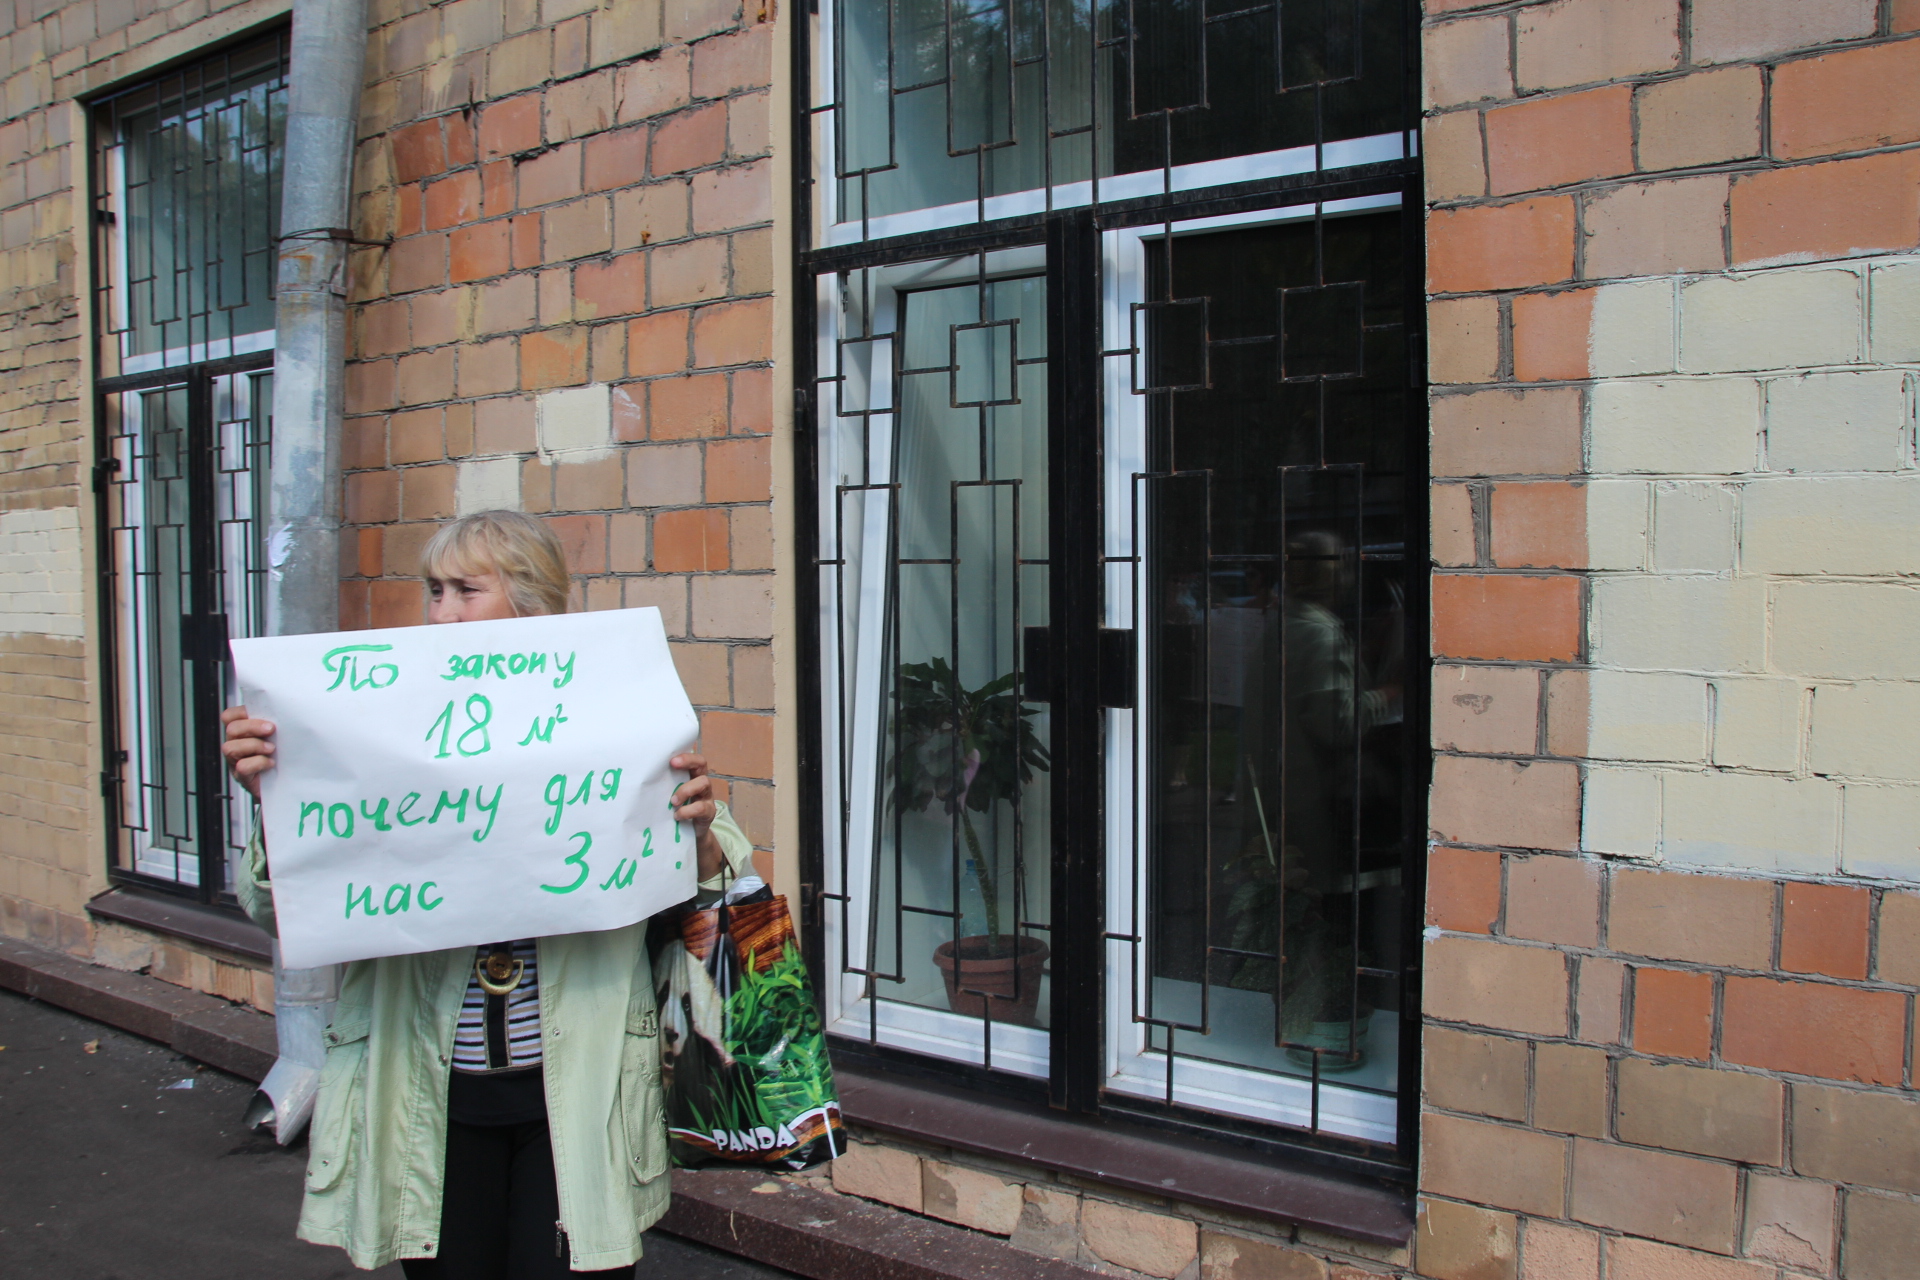 По закону
18 м²
почему для
нас 3 м² ?
PANDA